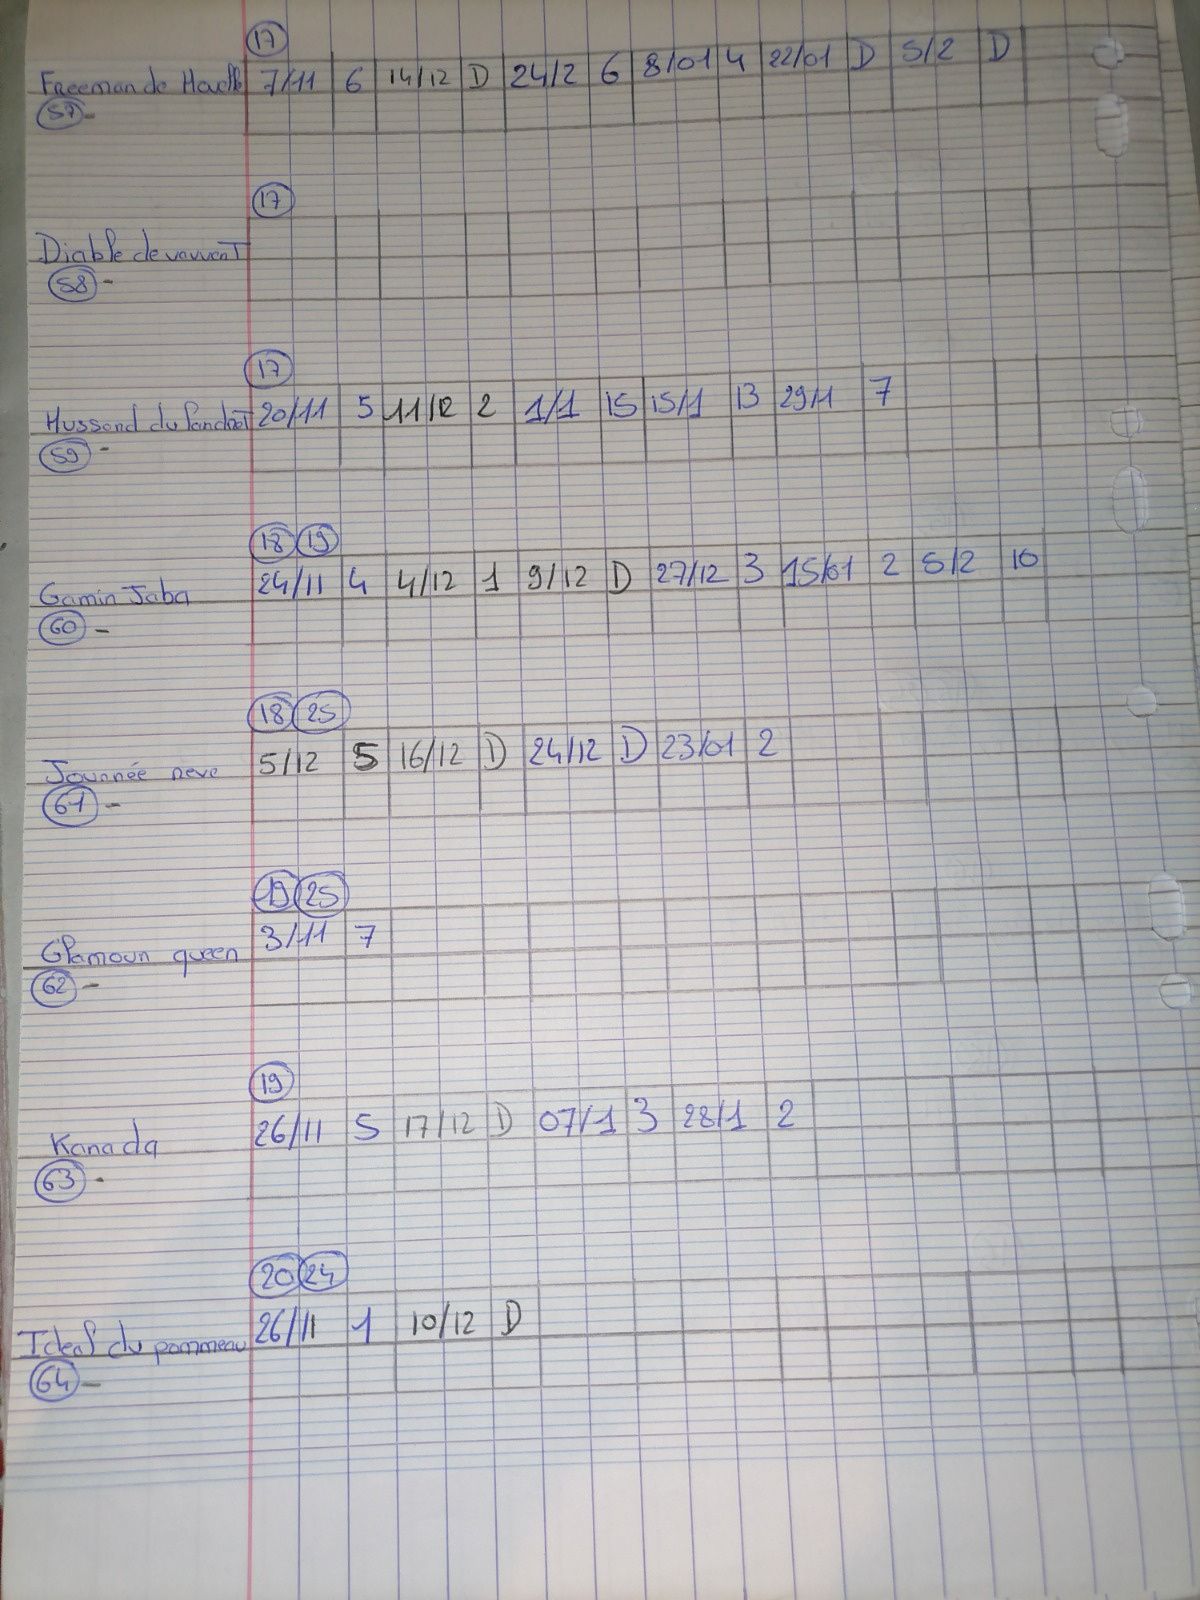 17
Freeman de Houelle 7/11 6 14/12 D 24/2 6 8/01 4 22/01 D 5/2 D
57 -
17
Diable de vauvert
58 -
17
Hussard du landret 20/11 5 11/12 2 1/1 15 15/1 13 29/1 7
59 -
18 19
Gamin Jaba 24/11 4 4/12 1 9/12 D 27/12 3 15/01 2 5/2 10
60 -
18 25
Journée neve 5/12 5 16/12 D 24/12 D 23/01 2
61 -
19 25
Glamour queen 3/11 7
62 -
19
Kanada 26/11 5 17/12 D 07/1 3 28/1 2
63 -
20 24
Ideal du pommeau 26/11 1 10/12 D
64 -